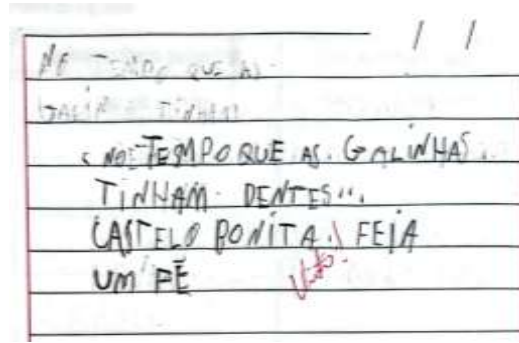 / /
NO TEMPO QUE AS
TINHAM
NO TEMPO QUE AS GALINHAS.
TINHAM DENTES...
CASTELO BONITA. FEIA
UM PÉ
Visto!